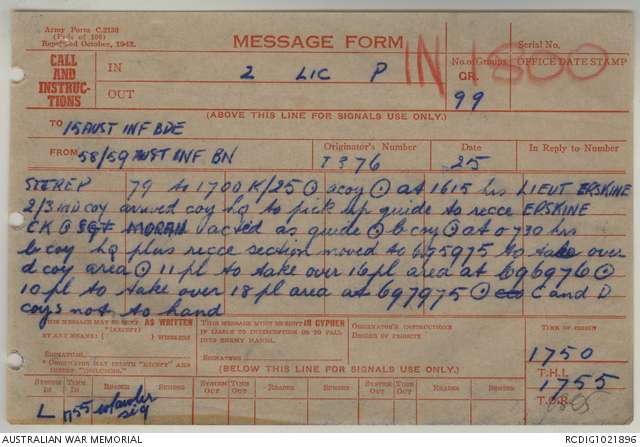 Army Form C.2136
(Pads of 100)
Reprinted October, 1942.
MESSAGE FORM
IN 1800
Serial No.
CALL
AND
INSTRUC-
TIONS
IN 2 LIC P
OUT
No. of Groups
GR.
99
OFFICE DATE STAMP
(ABOVE THIS LINE FOR SIGNALS USE ONLY.)
TO 15 AUST INF BDE
FROM 58/59 AUST INF BN
Originator's Number
Date 25
In Reply to Number
SITREP 79 to 1700 K/25 ⊙ acoy ⊙ at 1615 hrs LIEUT ERSKINE
2/3 coy arrived coy hq to pick up guide to recce ERSKINE
CK ⊙ SGT MORAN acted as guide ⊙ b coy ⊙ at 0730 hrs
b coy hq plus recce section moved to 695975 to take over
d coy area ⊙ 11 pl to take over 16 pl area at 696976 ⊙
10 pl to take over 18 pl area at 697975 ⊙ C and D
coys not to hand
THIS MESSAGE MAY BE SENT AS WRITTEN
(EXCEPT)
BY ANY MEANS ( ) WIRELESS
SIGNATURE
* ORIGINATOR MAY DELETE "EXCEPT" AND
INSERT "INCLUDING."
THIS MESSAGE MUST BE SENT IN CIPHER
IF LIABLE TO INTERCEPTION OR TO FALL
INTO ENEMY HANDS.
SIGNATURE
ORIGINATOR'S INSTRUCTIONS
DEGREE OF PRIORITY
TIME OF ORIGIN
1750
T.H.I.
1755
T.O.R.
1805
(BELOW THIS LINE FOR SIGNALS USE ONLY.)
SYSTEM IN TIME IN READER SENDER SYSTEM OUT TIME OUT READER SENDER SYSTEM OUT TIME OUT READER SENDER
L 1755 sig
AUSTRALIAN WAR MEMORIAL RCDIG1021896